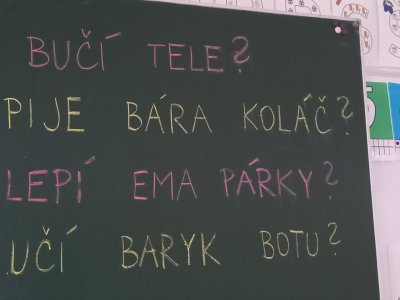 BUČÍ TELE?
PIJE BÁRA KOLÁČ?
LEPÍ EMA PÁRKY?
UČÍ BARYK BOTU?